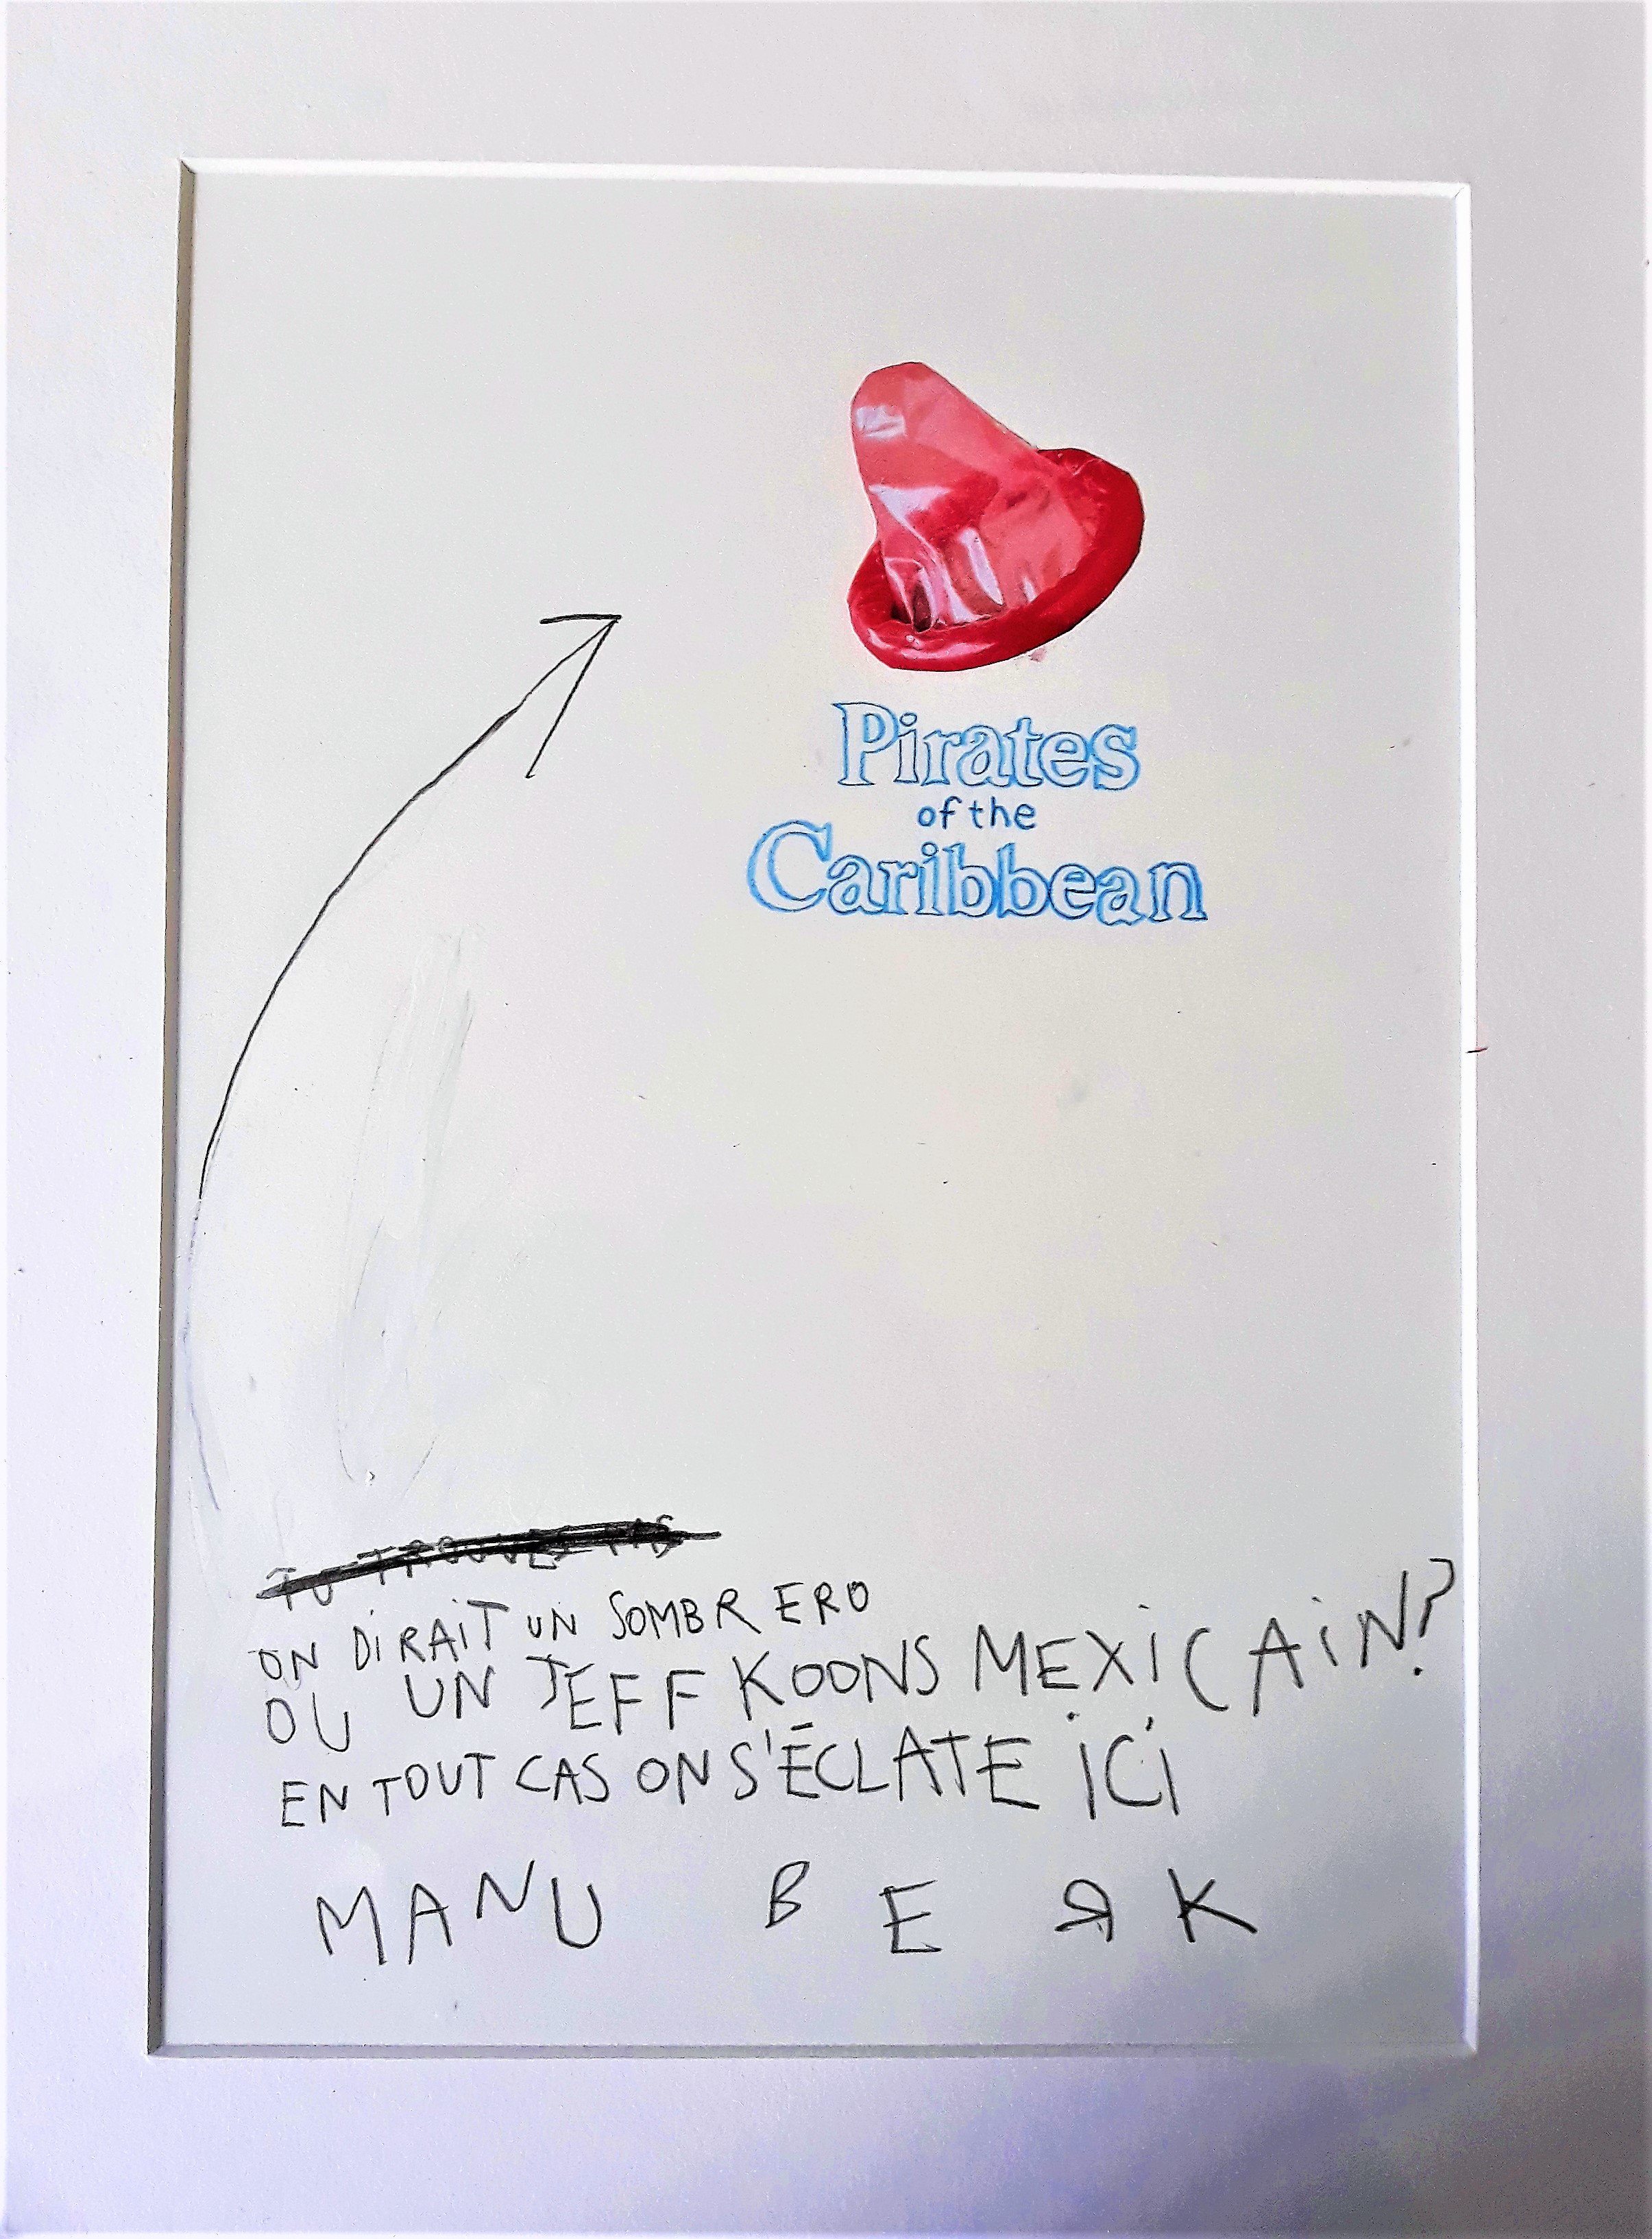 Pirates
of the
Caribbean
TU TROUVES PAS
ON DiRAiT UN SOMBRERO
OU UN JEFF KOONS MEXiCAiN?
EN TOUT CAS ON S'ÉCLATE iCi
MANU BEЯK